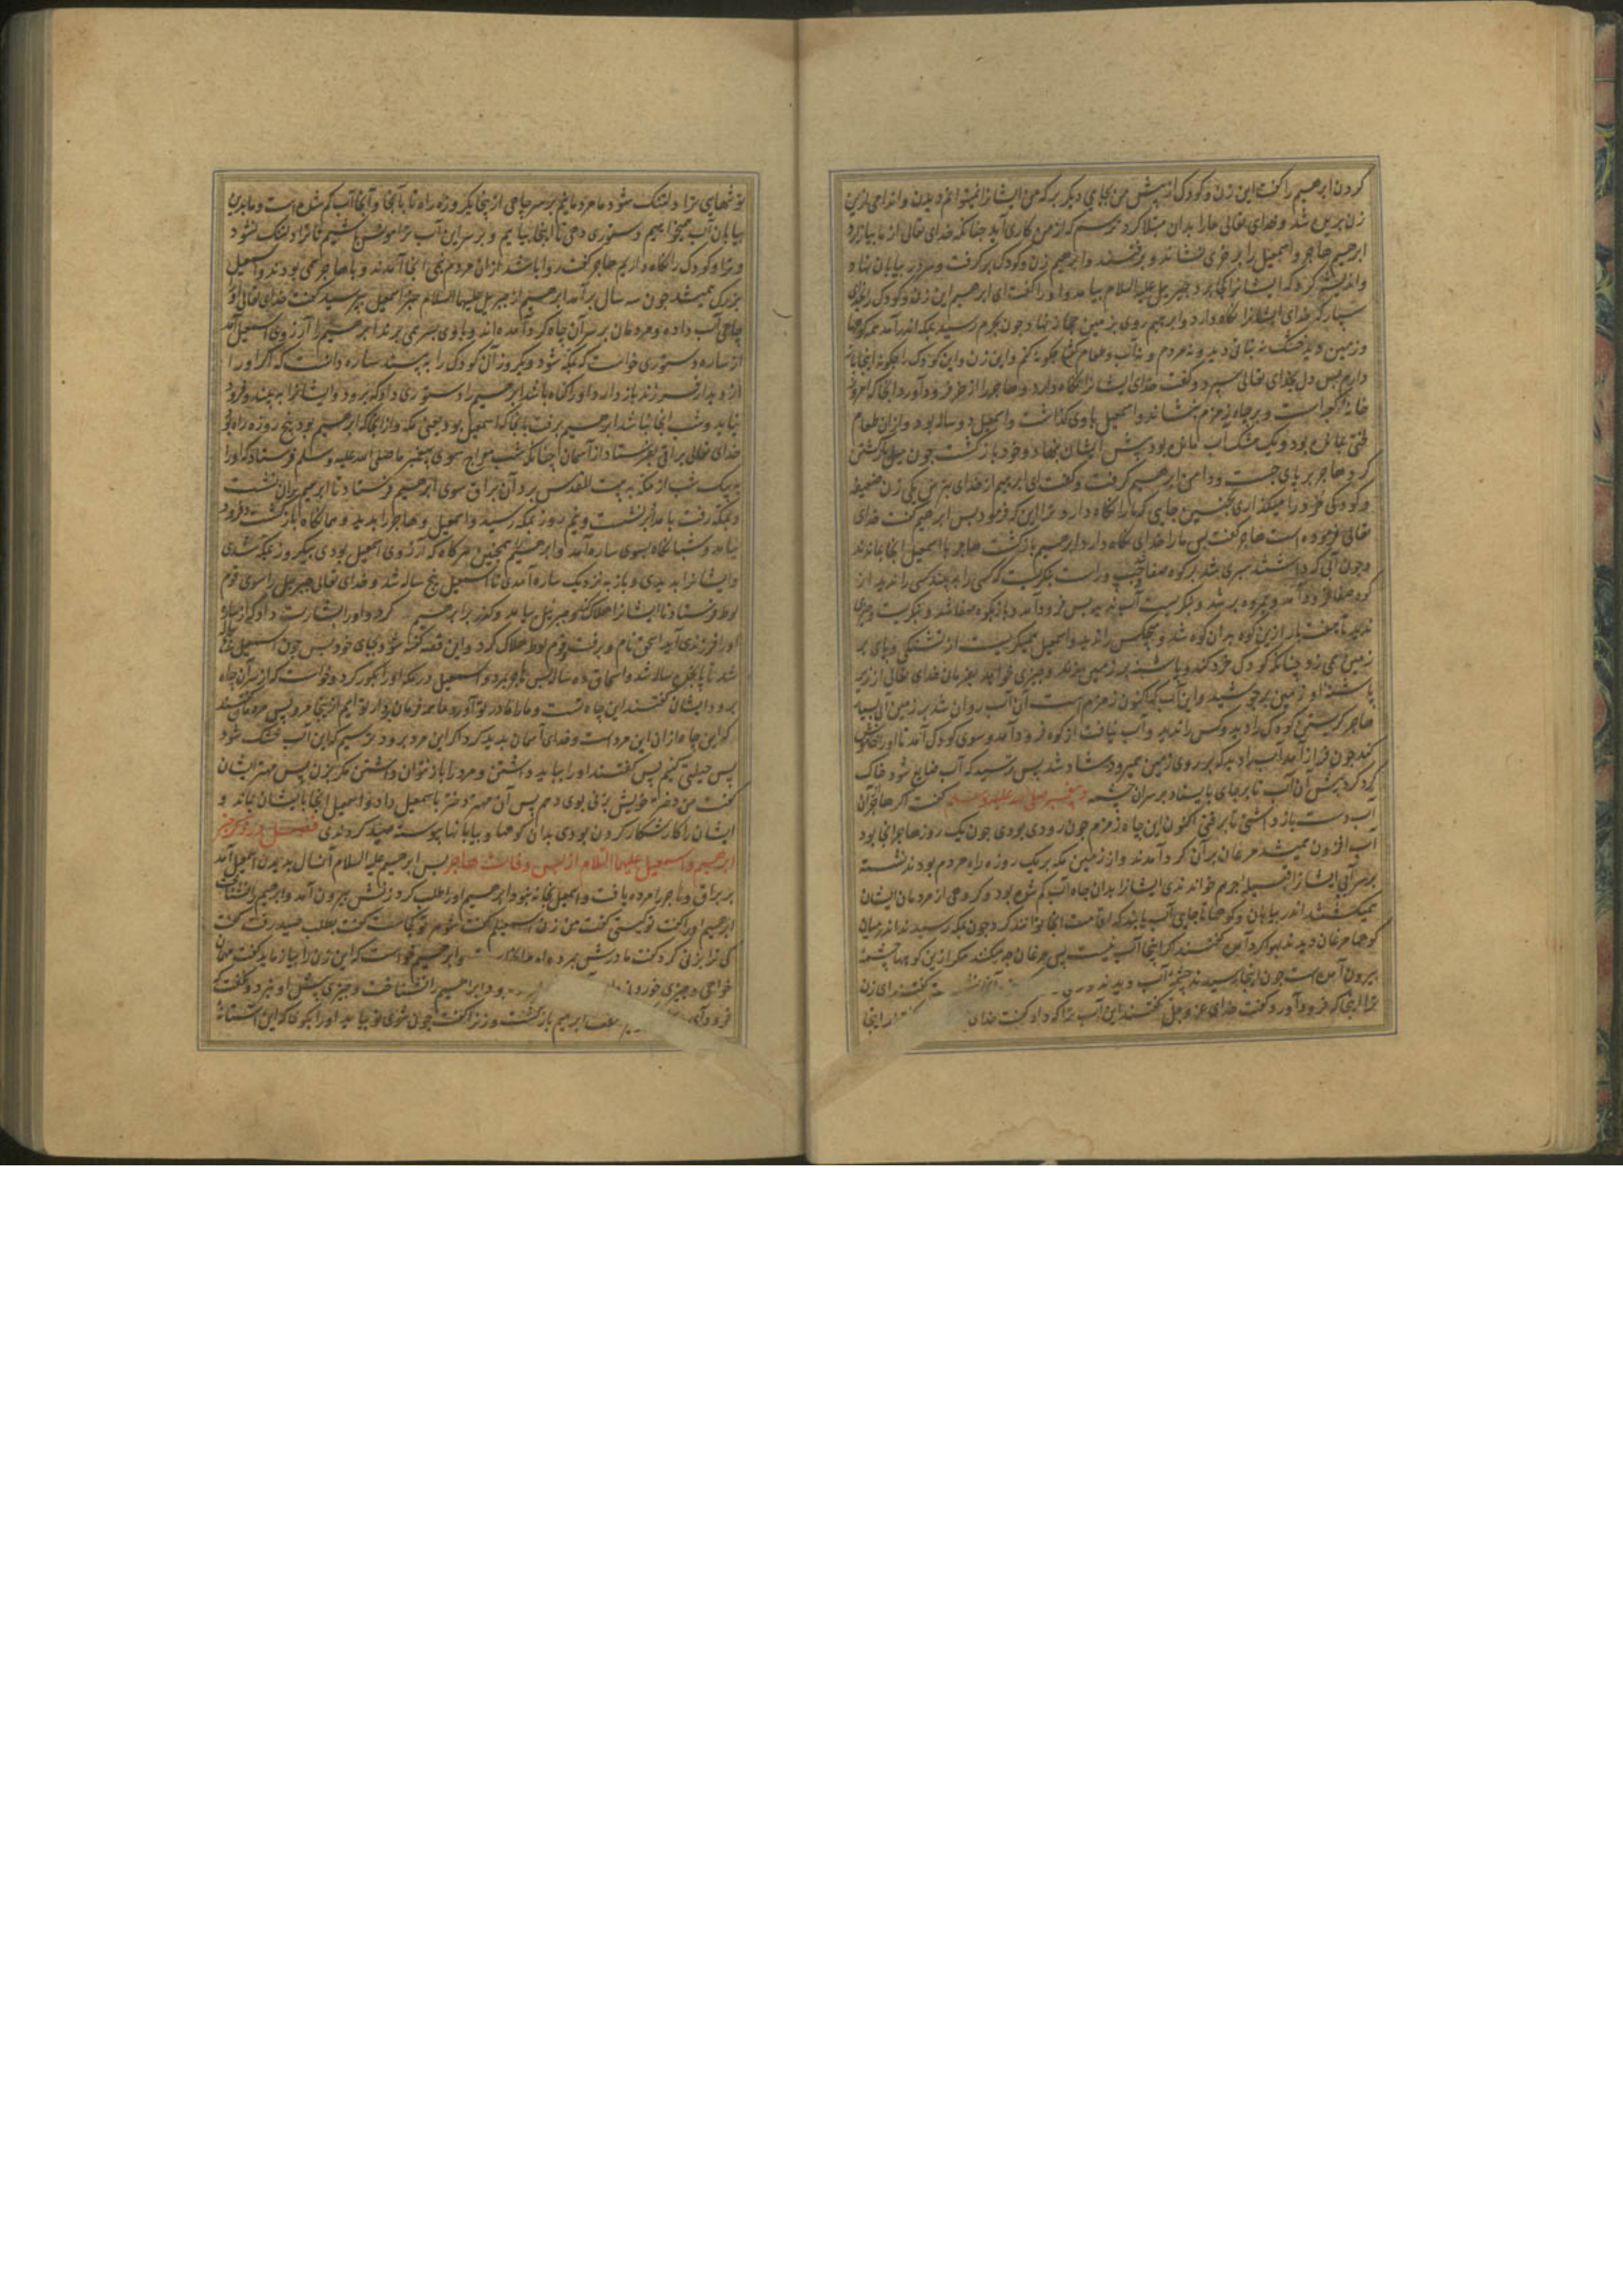 کردن ابرهیم را کفت این زن و کودک از پیش من بجای دیکر بر که من ایشانرا نمیتوانم دیدن و اندامی ازین
زن بریده شد و خدای تعالی مارا بدان مبتلا کرد ترسم که از من کاری آید چنانکه خدای تعالی از ما بیازارد
ابرهیم هاجر و اسمعیل را بر خری نشاند و برفتند و ابرهیم زن و کودک بر کرفت و سر در بیابان نهاد
و اندیشه کرد که ایشانرا کجا برد جبریل علیه السلام بیامد و او را کفت ای ابرهیم این زن و کودک را بخدای
سپار که خدای ایشانرا نکاه دارد و ابرهیم روی بزمین حجاز نهاد و چون بحرم رسید بمکه اندر آمد همه کوهها
و زمین دید خشک نه نباتی دید و نه مردم و نه آب و طعام کفتا چکونه کنم و این زن و این کودک را چکونه اینجا
داریم پس دل بخدای تعالی سپرد و کفت خدای ایشانرا نکاه دارد و هاجر را از خر فرود آورد آنجا که امروز
خانه است و بر چاه زمزم بنشاند و اسمعیل با وی بکذاشت و اسمعیل دو ساله بود و از ان طعام
لختی بمانده بود و یک مشک آب مانده بود پیش ایشان بنهاد و خود بازکشت چون میل بازکشتن
کرد هاجر بر پای جست و دامن ابرهیم کرفت و کفت ای ابرهیم از خدای بترس یکی زن ضعیفه
و کودکی خرد را میکذاری بچنین جایی که مارا نکاه دارد و ترا این که فرمود پس ابرهیم کفت خدای
تعالی فرموده است هاجر کفت پس مارا خدای نکاه دارد ابرهیم بازکشت هاجر با اسمعیل آنجا بماندند
و چون آبی که داشتند سپری شد بر کوه صفا و راست بنکریست که کسی را بیند کسی را ندید از
کوه صفا فرود آمد و بمروه بر شد و بنکریست آب ندید پس فرود آمد و باز بکوه صفا شد و بنکریست و چیزی
ندید تا هفت بار ازین کوه بدان کوه شد و هیچکس را ندید و اسمعیل میکریست از تشنکی و پای بر
زمین همی زد چنانکه کودک خرد کند و پاشنه بر زمین میزند و چیزی خواهد بفرمان خدای تعالی از زیر
پاشنه او زمین برجوشید و این آب که اکنون زمزم است آن آب روان شد بر زمین آن بسیار
هاجر کریستن کودک را دید و کس را ندید و آب نیافت از کوه فرود آمد و سوی کودک آمد تا او را خاموش
کند چون فراز آمد آب را دید که بر روی زمین میرود شاد شد پس ترسید که آب ضایع شود خاک
کرد کرد پیش آن آب تا بر جای بایستاد بر سر آن چشمه و پیغمبر صلی الله علیه و سلم کفت اکر هاجر آن
آب دست باز داشتی تا برفتی اکنون این چاه زمزم چون رودی بودی چون یک روز هاجر آنجا بود
آب افزون میشد مرغان بر آن کرد آمدند و از زمین مکه بر یک روزه راه مردم بودند نشسته
بر سر آبی ایشانرا قبیله جرهم خواندندی ایشانرا بدان چاه آب کم شده بود و کروهی از مردمان ایشان
میکشتند اندر بیابان و کوهها تا جایی آب یابند که اقامت آنجا توانند کرد چون بمکه رسیدند اندر میان
کوهها مرغان دیدند بهوا کرد آمده کفتند اکر اینجا آب نیست پس مرغان چه میکنند مکر ازین کوهها چشمه
بیرون آمده است چون اینجا رسیدند چشمه آب دیدند کفتند ای زن
ترا اینجا که فرود آورد کفت خدای عز و جل کفتند این آب ترا که داد کفت خدای اینجا
تو تنهایی ترا دلتنک شود ما مردمانیم بر سر چاهی از اینجا یکروزه راه تا بآنجا و آنجا آب کم شده است و ما بدین
بیابان آب میخواهیم دستوری دهی تا اینجا بیاییم و بر سر این آب ترا مونس باشیم تا ترا دلتنک نشود
و ترا و کودک را نکاه داریم هاجر کفت روا باشد از ان مردم آنجا آمدند و با هاجر همی بودند و اسمعیل
بزرک میشد چون سه سال بر آمد ابرهیم از جبریل علیهما السلام خبر اسمعیل بپرسید کفت خدای تعالی او را
چاهی آب داده و مردمان بر سر آن چاه کرد آمده اند و با وی بسر می برند ابرهیم را آرزوی اسمعیل آمد
از ساره دستوری خواست که بمکه شود و یکروز آن کودک را ببیند ساره دانست که اکر او را
از دیدار فرزند باز دارد او را کناه باشد ابرهیم را دستوری داد که برود و ایشانرا ببیند و فرود
نیاید و شب آنجا نباشد ابرهیم برفت تا آنجا که اسمعیل بود یعنی مکه و از آنجا که ابرهیم بود پنج روزه راه بود
خدای تعالی براق بفرستاد از آسمان چنانکه شب معراج سوی پیغمبر ما صلی الله علیه و سلم فرستاد که او را
بیک شب از مکه به بیت المقدس برد آن براق سوی ابرهیم فرستاد تا ابرهیم بر ان نشست
و بمکه رفت بامداد بر نشست و نیم روز بمکه رسید و اسمعیل و هاجر را بدید و هم آنکاه بازکشت و فرود
نیامد و شبانکاه بسوی ساره آمد و ابرهیم همچنین هر کاه که آرزوی اسمعیل بودی بیکروز بمکه شدی
و ایشانرا بدیدی و باز بنزدیک ساره آمدی تا اسمعیل پنج ساله شد و خدای تعالی جبریل را سوی قوم
لوط فرستاد تا ایشانرا هلاک کند جبریل بیامد و کذر بر ابرهیم کرد و او را بشارت داد که از ساره
او را فرزندی آید اسحق نام و برفت و قوم لوط هلاک کرد و این قصه کفته شود بجای خود پس چون اسمعیل
شد تا پانزده ساله شد و اسحاق ده ساله پس هاجر بمرد و اسمعیل در مکه او را بکور کرد و خواست که از سر آن چاه
برود ایشان کفتند این چاه تست و مارا مادر تو آورد ما همه فرمان بردار توایم از اینجا مرو پس مردمان کفتند
که این چاه از ان این مرد است و خدای آسمان پدید کرد اکر این مرد برود ترسیم که این آب خشک شود
پس حیلتی کنیم پس کفتند او را بباید داشتن و مرد را باز نتوان داشتن مکر بزن پس مهتر ایشان
کفت من دختر خویش بزنی بوی دهم پس آن مهتر دختر باسمعیل داد و اسمعیل آنجا با ایشان بماند و
ایشان را کار شکار کردن بودی بدان کوهها و بیابانها پیوسته صید کردندی فصل در ذکر خبر
ابرهیم و اسمعیل علیهما السلام از پس وفات هاجر پس ابرهیم علیه السلام آنسال بدیدن اسمعیل آمد
بر براق و هاجر را مرده یافت و اسمعیل بخانه نبود ابرهیم او را طلب کرد زنش بیرون آمد و ابرهیم را نشناخت
ابرهیم او را کفت تو کیستی کفت من زن اسمعیلم کفت شوهر تو کجاست کفت بطلب صید رفت کفت
کی ترا بزنی کرد کفت مادرش مرده بود ابرهیم خواست که این زن را بیازماید کفت مهمان
خواهی و چیزی خوردنی ابرهیم را نشناخت و چیزی پیش او نبرد و نکفت که
فرود آی ابرهیم بازکشت و زنرا کفت چون شوی تو بیاید او را بکوی که این آستانه